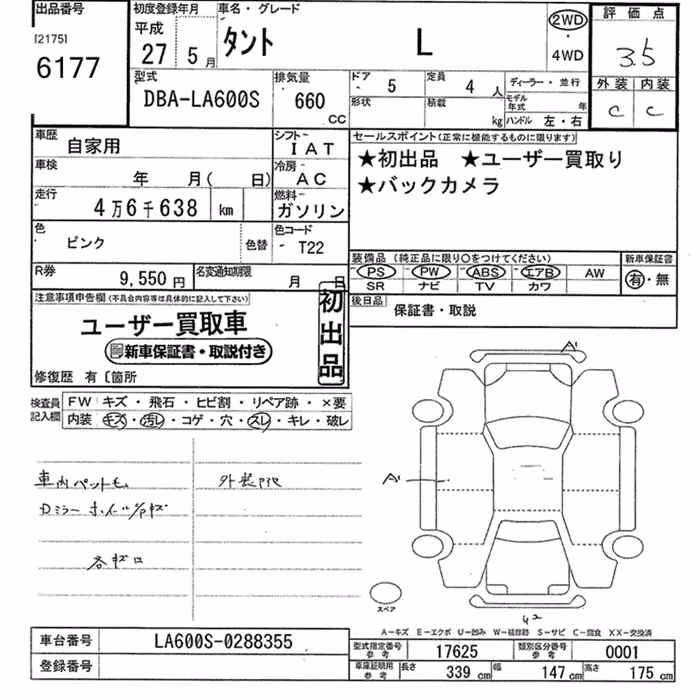 出品番号 初度登録年月 車名・グレード 評価点
[2175] 平成 タント L 2WD 3.5
6177 27 5月 4WD
型式 排気量 ドア 5 定員 4人 ディーラー・並行 外装 内装
DBA-LA600S 660 CC 形状 積載 kg モデル年式 年 C C
ハンドル 左・右
車歴 自家用 シフト IAT セールスポイント(正常に機能するものに限ります)
車検 年 月( 日) 冷房 AC ★初出品 ★ユーザー買取り
走行 4万6千638 km 燃料 ガソリン ★バックカメラ
色 ピンク 色替 色コード T22
装備品 (純正品に限り○をつけてください) 新車保証書
R券 9,550円 名変通知期限 月 日 PS PW ABS エアB AW 有・無
SR ナビ TV カワ
注意事項申告欄(不具合内容等は具体的に記入して下さい) 初出品 後日品 保証書・取説
ユーザー買取車
新車保証書・取説付き
修復歴 有〔箇所
検査員記入欄 FW キズ・飛石・ヒビ割・リペア跡・×要
内装 キズ・汚レ・コゲ・穴・スレ・キレ・破レ
A'
A'
車内ペットモ
Dミラー ホイール
各キズ
スペア
A-キズ E-エクボ U-凹み W-補修跡 S-サビ C-腐食 XX-交換済
車台番号 LA600S-0288355 型式指定番号 参考 17625 類別区分番号 参考 0001
登録番号 車庫証明用 参考 長さ 339 cm 幅 147 cm 高さ 175 cm